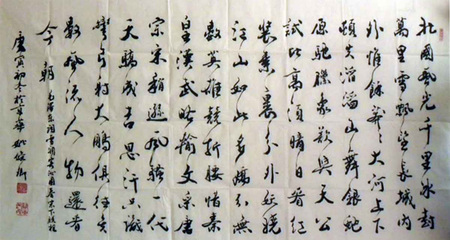 北國風光千里冰封
萬里雪飄望長城內
外惟餘莽莽大河上下
頓失滔滔山舞銀蛇
原馳蠟象欲與天公
試比高須晴日看紅
裝素裹分外妖嬈
江山如此多嬌引無
數英雄競折腰惜秦
皇漢武略輸文采唐
宗宋稍遜風騷一代
天驕成吉思汗只識
彎弓射大鵬俱往矣
數風流人物還看
今朝 毛澤東詞雪調寄沁園春
庚寅初冬於